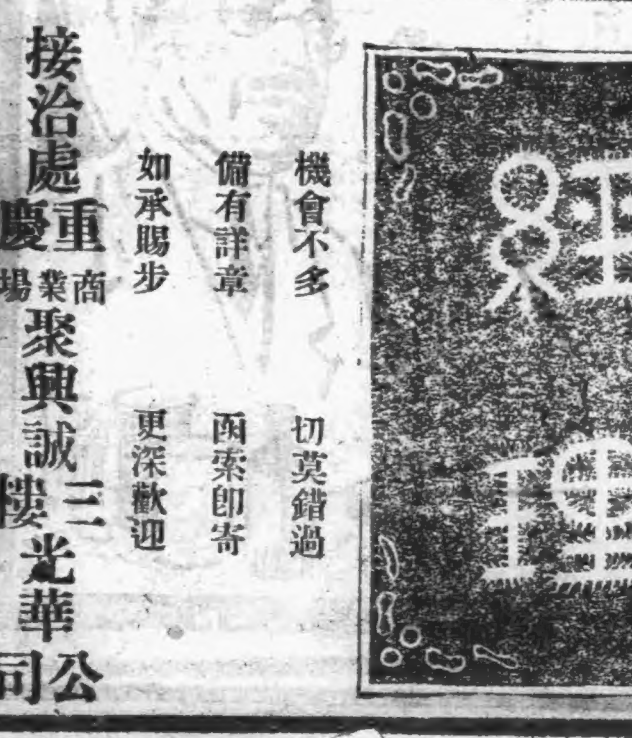 經理
機會不多 切莫錯過
備有詳章 函索即寄
如承賜步 更深歡迎
接洽處重慶商業場聚興誠三樓光華公司